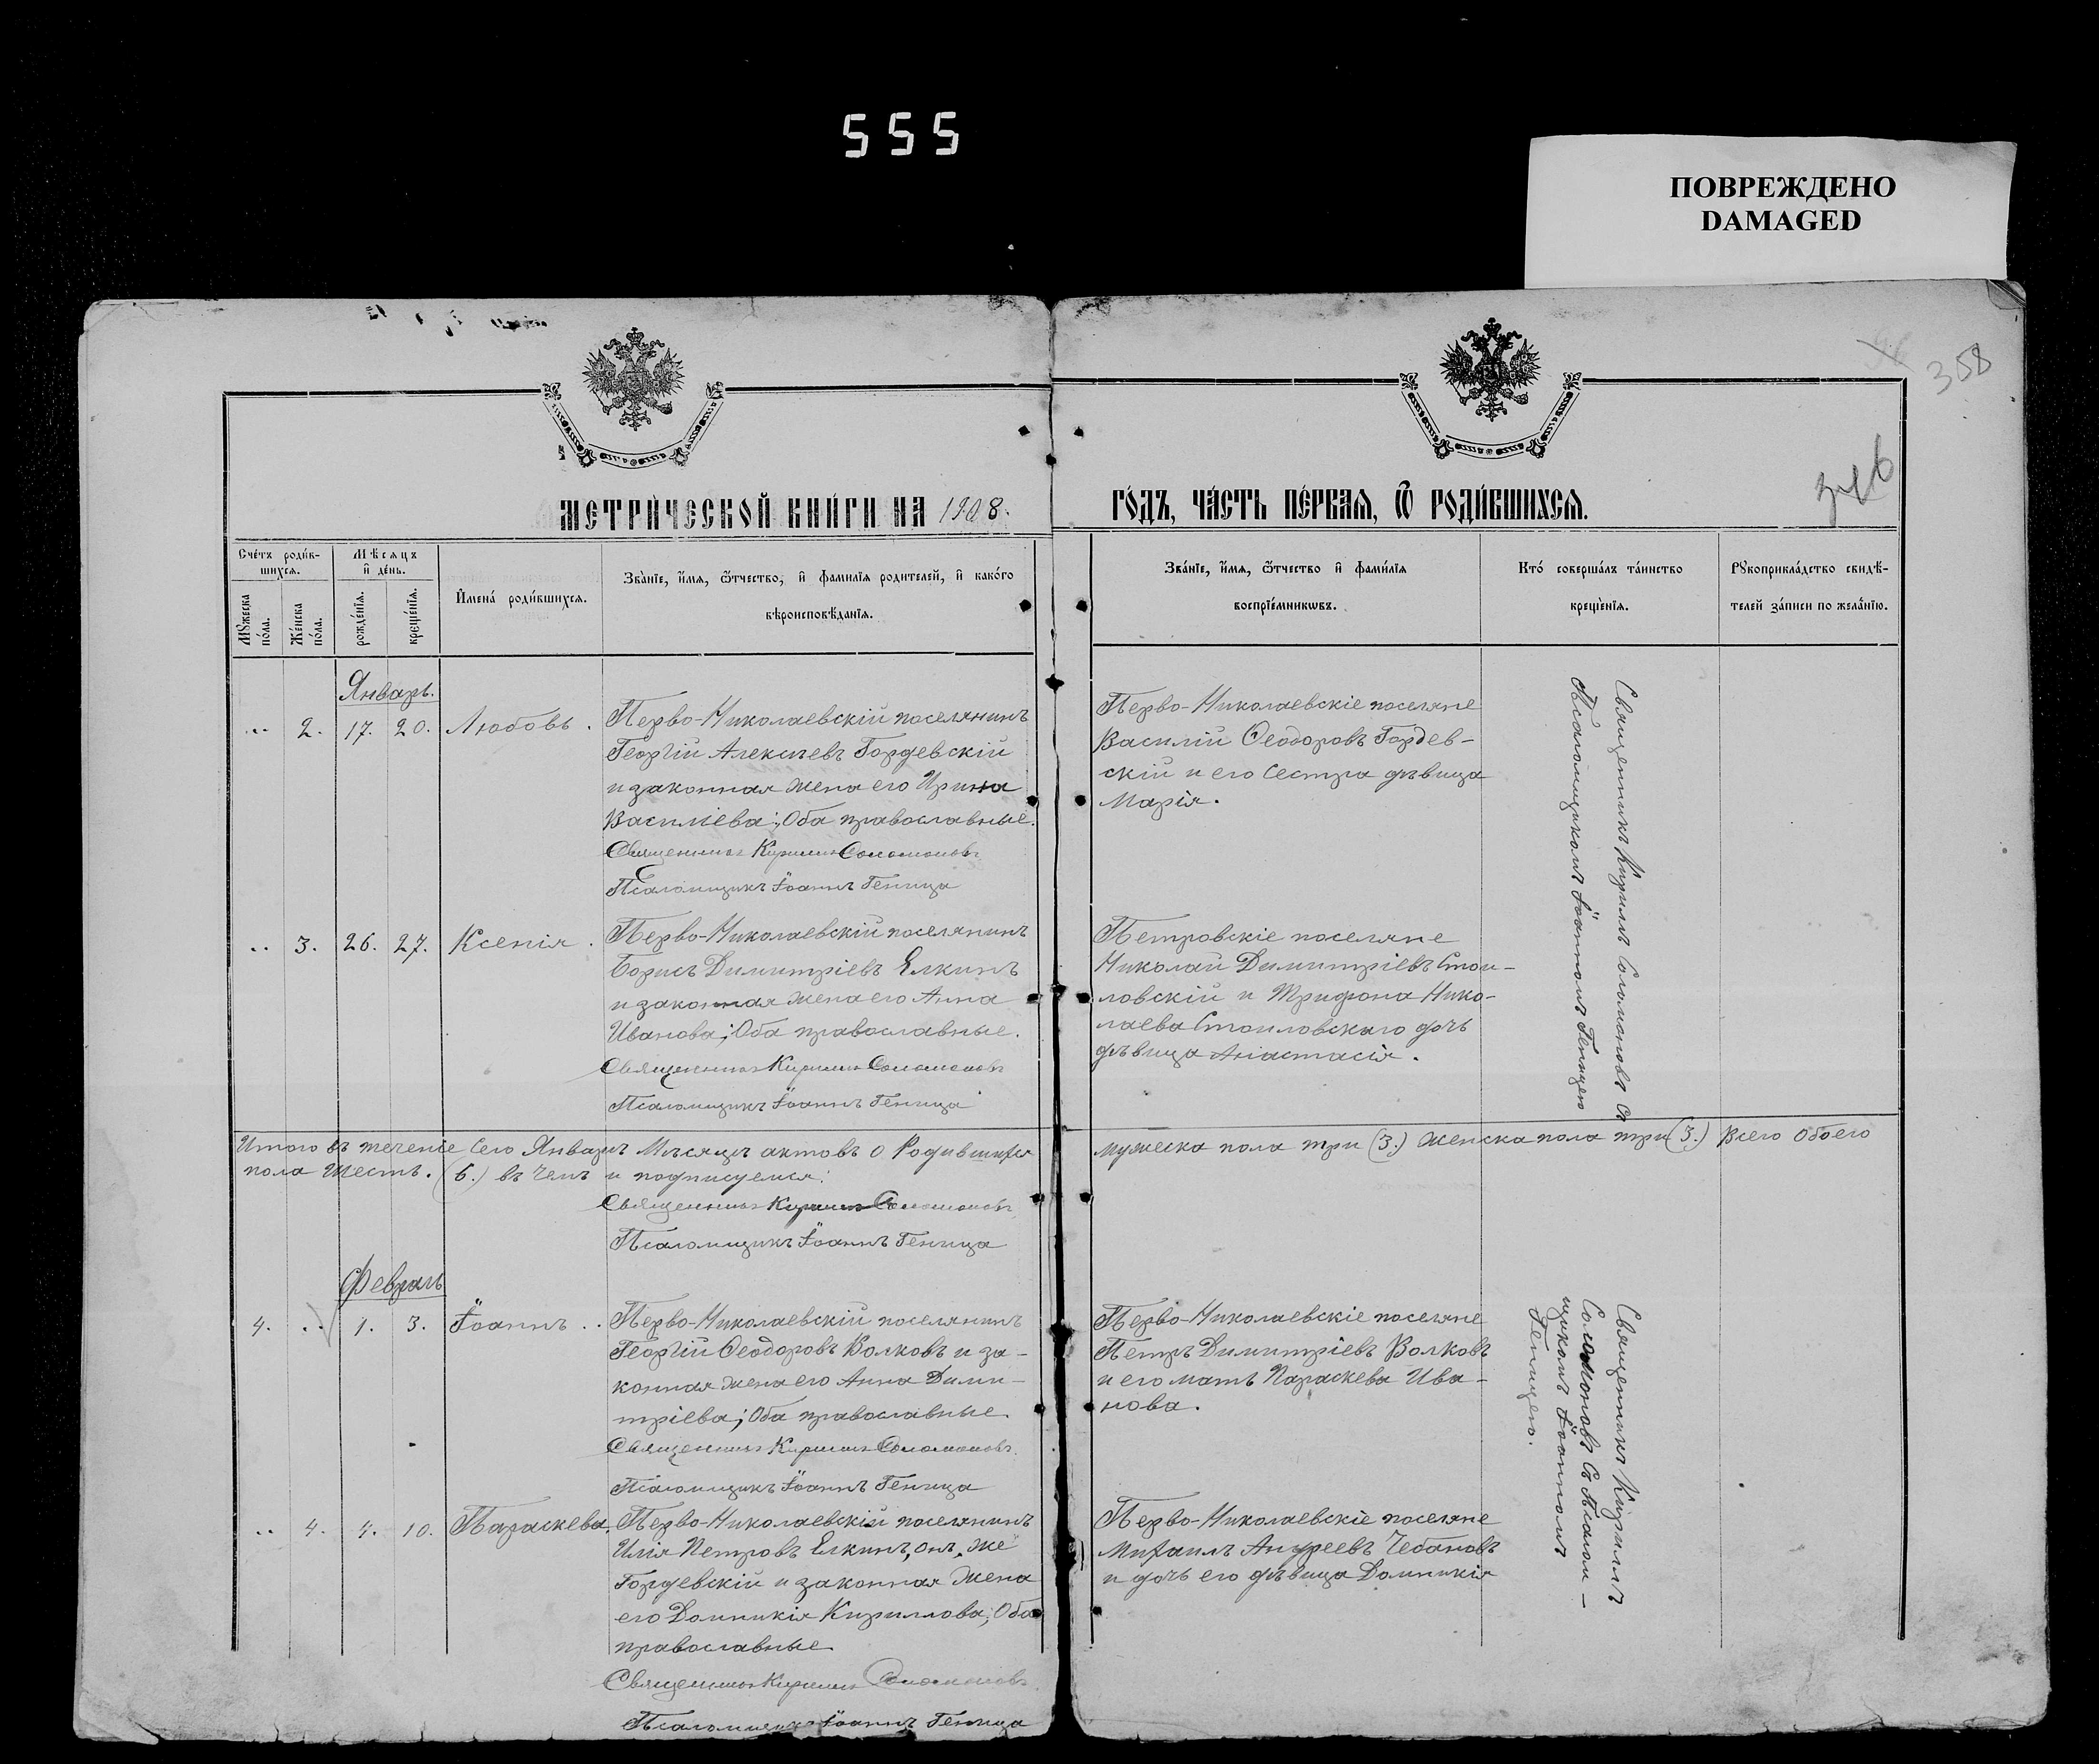 555
ПОВРЕЖДЕНО
DAMAGED
358
346
МЕТРИ́ЧЕСКОЙ КНИ́ГИ НА 1908.
ГО́ДЪ, ЧА́СТЬ ПЕ́РВАЯ, Ѿ РОДИ́ВШИХСЯ.
Счётъ роди́в-
шихся.
Мѣсяцъ
и҆ де́нь.
Мꙋ́жеска
по́ла.
Же́нска
по́ла.
рожде́нїя.
креще́нїя.
И҆мена́ роди́вшихся.
Зва́нїе, и҆́мя, ѻ҆́тчество, и҆ фами́лїя родителей, и҆ како́го
вѣроисповѣ́данїя.
Зва́нїе, и҆́мя, ѻ҆́тчество и҆ фами́лїя
воспрїе́мникѡвъ.
Кто́ соверша́лъ та́инство
креще́нїя.
Рꙋкоприкла́дство свидѣ́-
телей за́писи по жела́нїю.
Январь.
.. 2. 17. 20. Любовь.
Перво-Николаевскій поселянинъ
Георгій Алексѣевъ Гордевскій
и законная жена его Ирина
Василіева; Оба православные.
Священникъ Кириллъ Соломоновъ
Псаломщикъ Іоаннъ Геница
Перво-Николаевскіе поселяне
Василій Ѳеодоровъ Гордев-
скій и его сестра дѣвица
Марія.
Священникъ Кириллъ Соломоновъ съ
Псаломщикомъ Іоанномъ Геницею
.. 3. 26. 27. Ксенія.
Перво-Николаевскій поселянинъ
Борисъ Димитріевъ Елкинъ
и законная жена его Анна
Иванова; Оба православные.
Священникъ Кириллъ Соломоновъ
Псаломщикъ Іоаннъ Геница
Петровскіе поселяне
Николай Димитріевъ Стои-
ловскій и Трифона Нико-
лаева Стоиловскаго дочь
дѣвица Анастасія.
Итого въ теченіе сего Январь Мѣсяцъ актовъ о Родившихся мужеска пола три (3.) женска пола три (3.) Всего Обоего
пола Шесть. (6.) въ чемъ и подписуемся:
Священникъ Кириллъ Соломоновъ
Псаломщикъ Іоаннъ Геница
Февраль
4. .. 1. 3. Іоаннъ..
Перво-Николаевскій поселянинъ
Георгій Ѳеодоровъ Волковъ и за-
конная жена его Анна Дими-
тріева; Оба православные.
Священникъ Кириллъ Соломоновъ
Псаломщикъ Іоаннъ Геница
Перво-Николаевскіе поселяне
Петръ Димитріевъ Волковъ
и его мать Параскева Ива-
нова.
Священникъ Кириллъ
Соломоновъ съ Псалом-
щикомъ Іоанномъ
Геницею.
.. 4. 4. 10. Параскева.
Перво-Николаевскій поселянинъ
Илія Петровъ Елкинъ, онъ же
Гордевскій и законная жена
его Домникія Кириллова; Оба
православные.
Священникъ Кириллъ Соломоновъ
Псаломщикъ Іоаннъ Геница
Перво-Николаевскіе поселяне
Михаилъ Андреевъ Чебановъ
и дочь его дѣвица Домникія